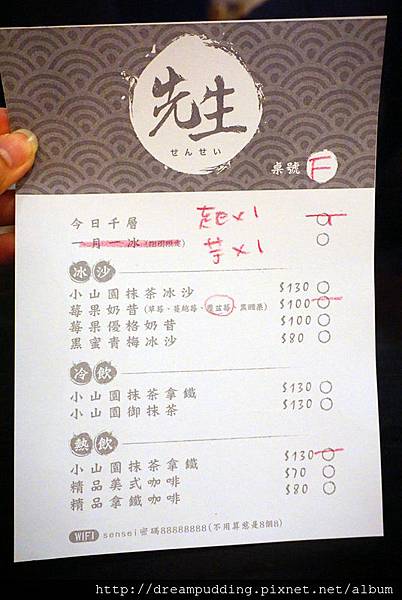 先生
せんせい
桌號 F
今日千層 起x1
一月一冰 芋x1
冰沙
小山園抹茶冰沙 $130
莓果奶昔(草莓、蔓越莓、覆盆莓、黑醋栗) $100
莓果優格奶昔 $100
黑蜜青梅冰沙 $80
冷飲
小山園抹茶拿鐵 $130
小山園御抹茶 $130
熱飲
小山園抹茶拿鐵 $130
精品美式咖啡 $70
精品拿鐵咖啡 $80
WIFI sensei密碼88888888(不用算總是8個8)
http://dreampudding.pixnet.net/album